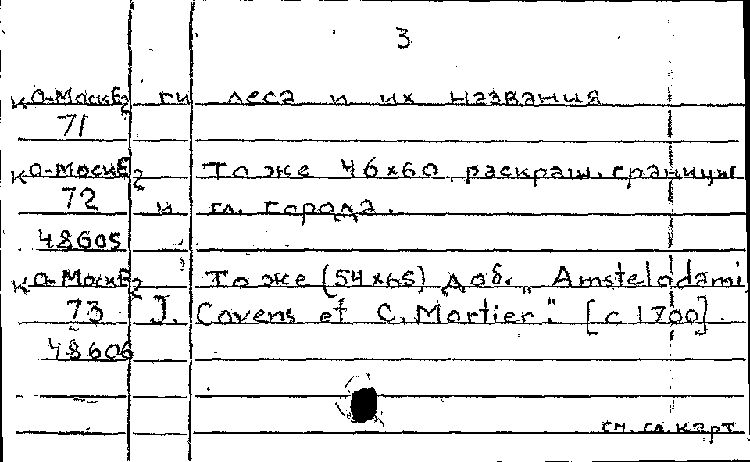 3
КО-МоскЕ2 ги леса и их названия
71
КО-МоскЕ2 То же 46x60 раскраш. границы
72 и гл. города.
48605
КО-МоскЕ2 То же (54x65) доб. „Amstelodami
73 J. Covens et C. Mortier". [c 1700].
48606
см. сл. карт